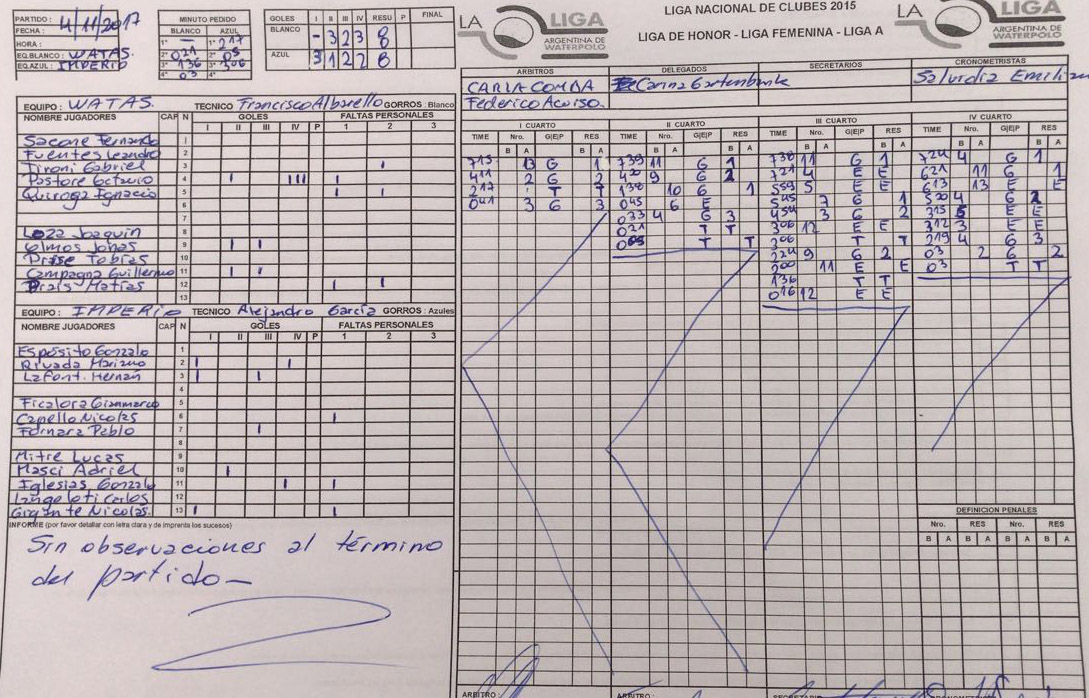 PARTIDO : 4/11/2017
FECHA :
HORA :
EQ.BLANCO : WATAS.
EQ.AZUL : IMPERIO
MINUTO PEDIDO
BLANCO AZUL
1° — 1° 217
2° 021 2° 05
3° 136 3° 306
4° 03 4°
GOLES I II III IV RESU P FINAL
BLANCO - 3 2 3 8
AZUL 3 1 2 2 8
LA LIGA
ARGENTINA DE
WATERPOLO
LIGA NACIONAL DE CLUBES 2015
LIGA DE HONOR - LIGA FEMENINA - LIGA A
LA LIGA
ARGENTINA DE
WATERPOLO
ARBITROS DELEGADOS SECRETARIOS CRONOMETRISTAS
CARLA COMBA Carina Gartenbank
Federico Acoiso
EQUIPO : WATAS. TECNICO Francisco Albarello GORROS : Blanco
NOMBRE JUGADORES CAP N GOLES FALTAS PERSONALES
I II III IV P 1 2 3
Sacone Fernando 1
Fuentes Leandro 2
Tironi Gabriel 3
Pastore Octavio 4
Quiroga Ignacio 5
6
7
Loza Joaquin 8
Olmos Jonas 9
Tobias 10
Campagna Guillermo 11
Matias 12
13
EQUIPO : IMPERIO TECNICO Alejandro García GORROS : Azules
NOMBRE JUGADORES CAP N GOLES FALTAS PERSONALES
I II III IV P 1 2 3
Espósito Gonzalo 1
Rivada Mariano 2
Lafont. Hernán 3
4
Ficalora Gianmarco 5
Capello Nicolas 6
Fornara Pablo 7
8
Mitre Lucas 9
Masci Adriel 10
Iglesias Gonzalo 11
Carlos 12
Gigante Nicolas. 13
INFORME (por favor detallar con letra clara y de imprenta los sucesos)
Sin observaciones al término
del partido—
I CUARTO
TIME Nro. G|E|P RES
B A B A
715 13 G 1
411 2 G 2
217 T T
041 3 G 3
II CUARTO
TIME Nro. G|E|P RES
B A B A
739 11 G 1
420 9 G 2
138 10 G 1
045 6 E
033 4 G 3
021 T T
005 T T
III CUARTO
TIME Nro. G|E|P RES
B A B A
738 11 G 1
721 4 E E
559 5 E E
545 7 G 1
454 3 G 2
306 12 E E
306 T T
224 9 G 2
200 11 E E
136 T T
016 12 E E
IV CUARTO
TIME Nro. G|E|P RES
B A
724 4 G 1
621 11 G 1
613 13 E E
520 4 G 2
315 5 E E
312 3 E E
219 4 G 3
03 2 G 2
03 T T
DEFINICION PENALES
Nro. RES Nro. RES
B A B A B A B A
ARBITRO : ARBITRO :